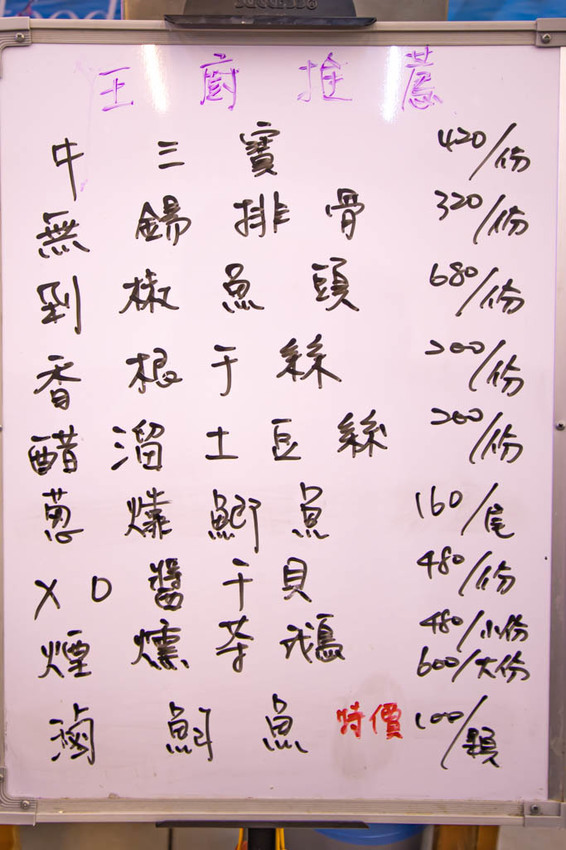 王廚推薦
牛三寶 420/份
無錫排骨 320/份
剁椒魚頭 680/份
香根干絲 200/份
醋溜土豆絲 200/份
蔥㸆鯽魚 160/尾
XO醬干貝 480/份
煙燻茶鵝 480/小份
600/大份
滷魚 特價 100/顆